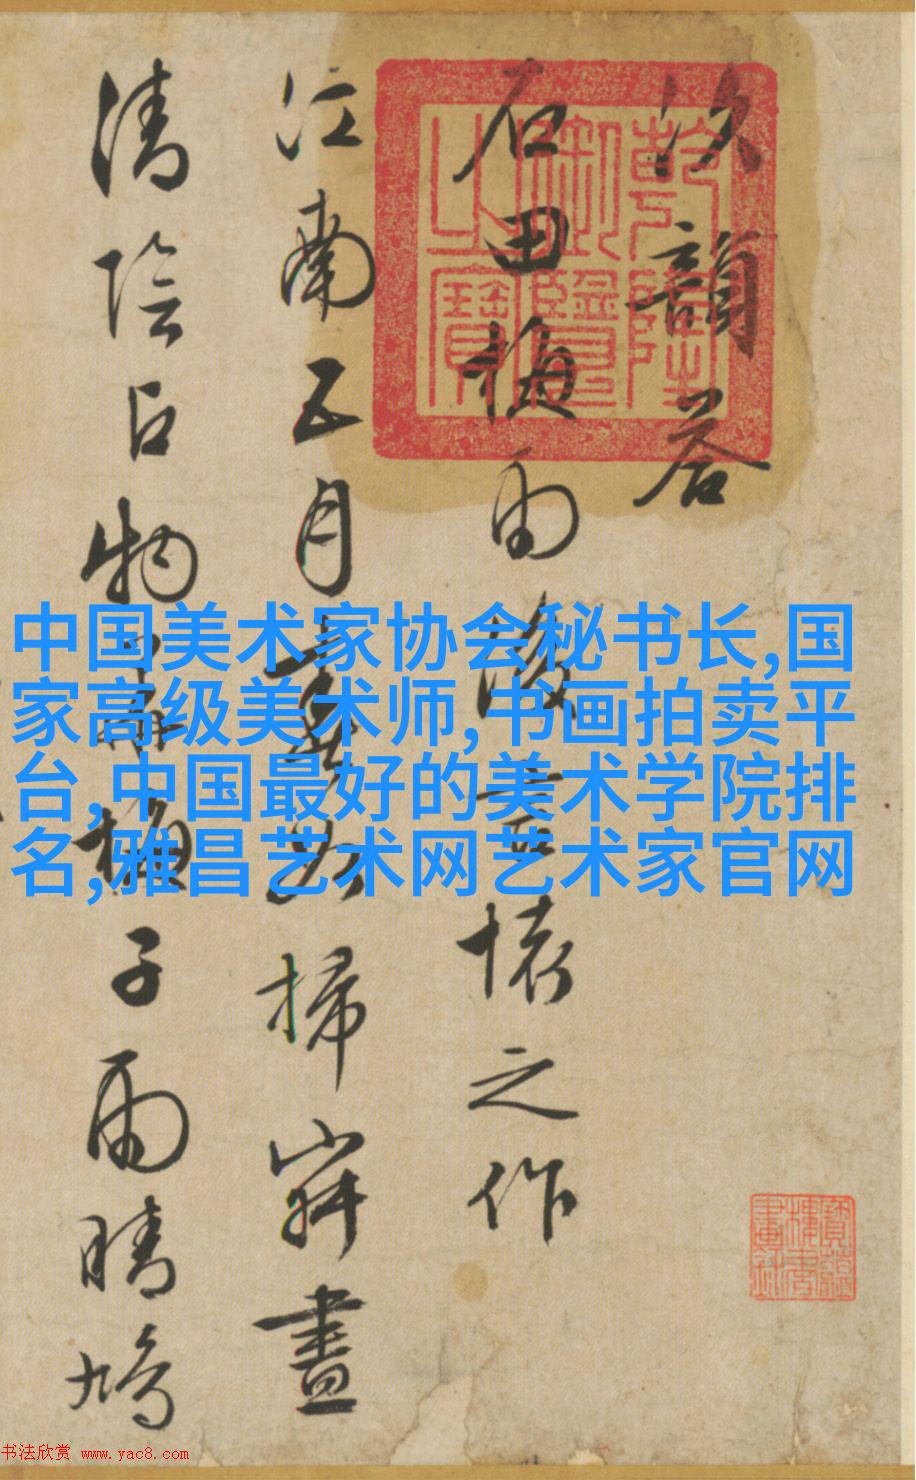 次韻答
石田梅雨後懷之作
江南五月如掃畫
清陰占物梅子雨晴鳩
乾隆御覽之寶
寶蘊樓書畫錄
中国美术家协会秘书长,国
家高级美术师,书画拍卖平
台,中国最好的美术学院排
名,雅昌艺术网艺术家官网
书法欣赏 www.yac8.com